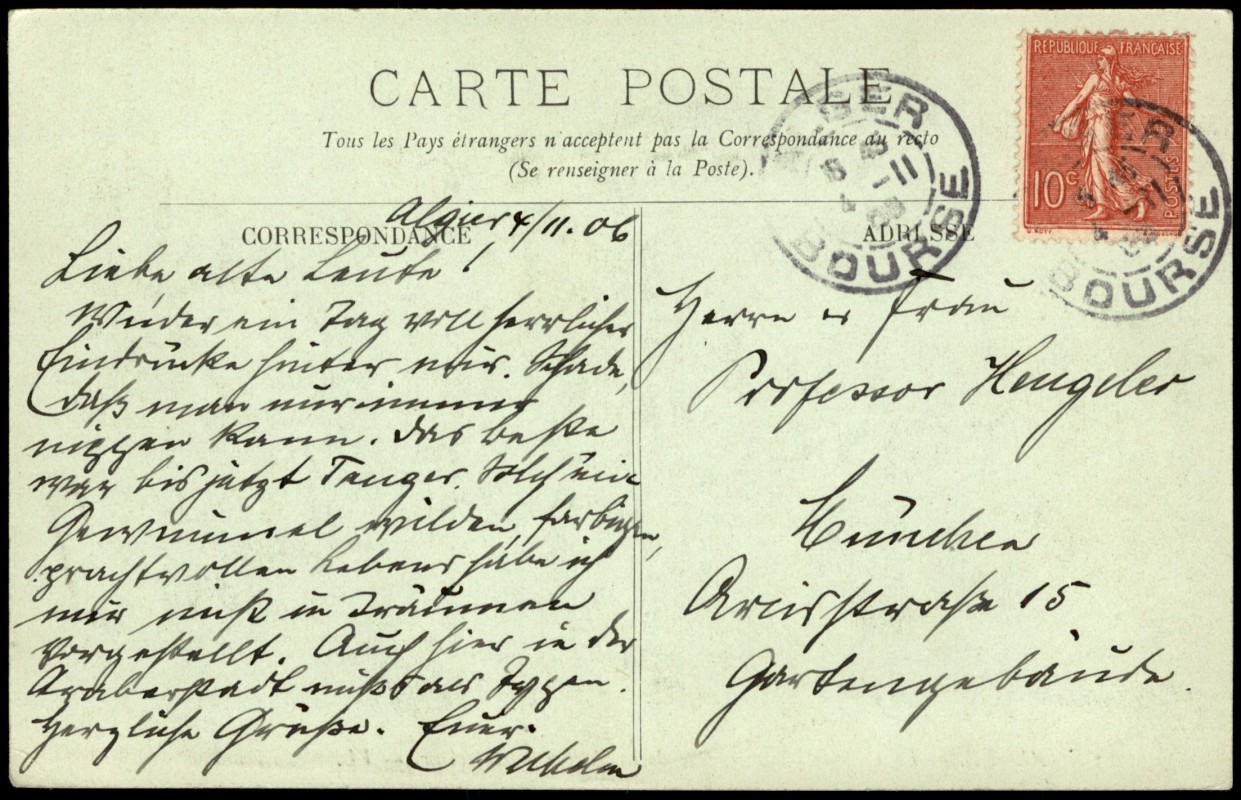 CARTE POSTALE
Tous les Pays étrangers n'acceptent pas la Correspondance au recto
(Se renseigner à la Poste).
RÉPUBLIQUE FRANÇAISE
10c
POSTES
ALGER
BOURSE
ALGER
BOURSE
CORRESPONDANCE
ADRESSE
Algier 4/11.06
Liebe alte Leute!
Wieder ein Tag voll herrlicher
Eindrücke hinter mir. Schade,
daß man nur immer
nippen kann. Das beste
war bis jetzt Tanger. Solch ein
Gewimmel wilden, farbigen,
prachtvollen Lebens habe ich
mir nicht in Träumen
vorgestellt. Auch hier in der
Araberstadt nichts als Typen.
Herzliche Grüße. Euer
Wilhelm
Herrn u Frau
Professor Hengeler
München
Arcisstraße 15
Gartengebäude.